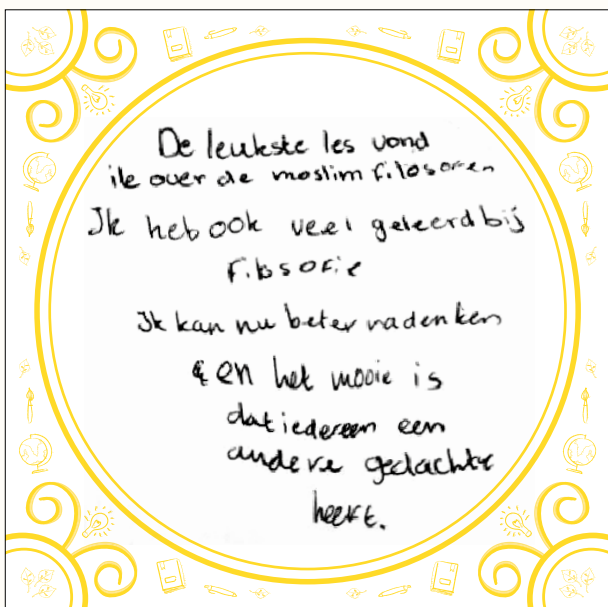 De leukste les vond
ik over de moslim filosofen
Ik heb ook veel geleerd bij
filosofie
Ik kan nu beter nadenken
en het mooie is
dat iedereen een
andere gedachte
heeft.